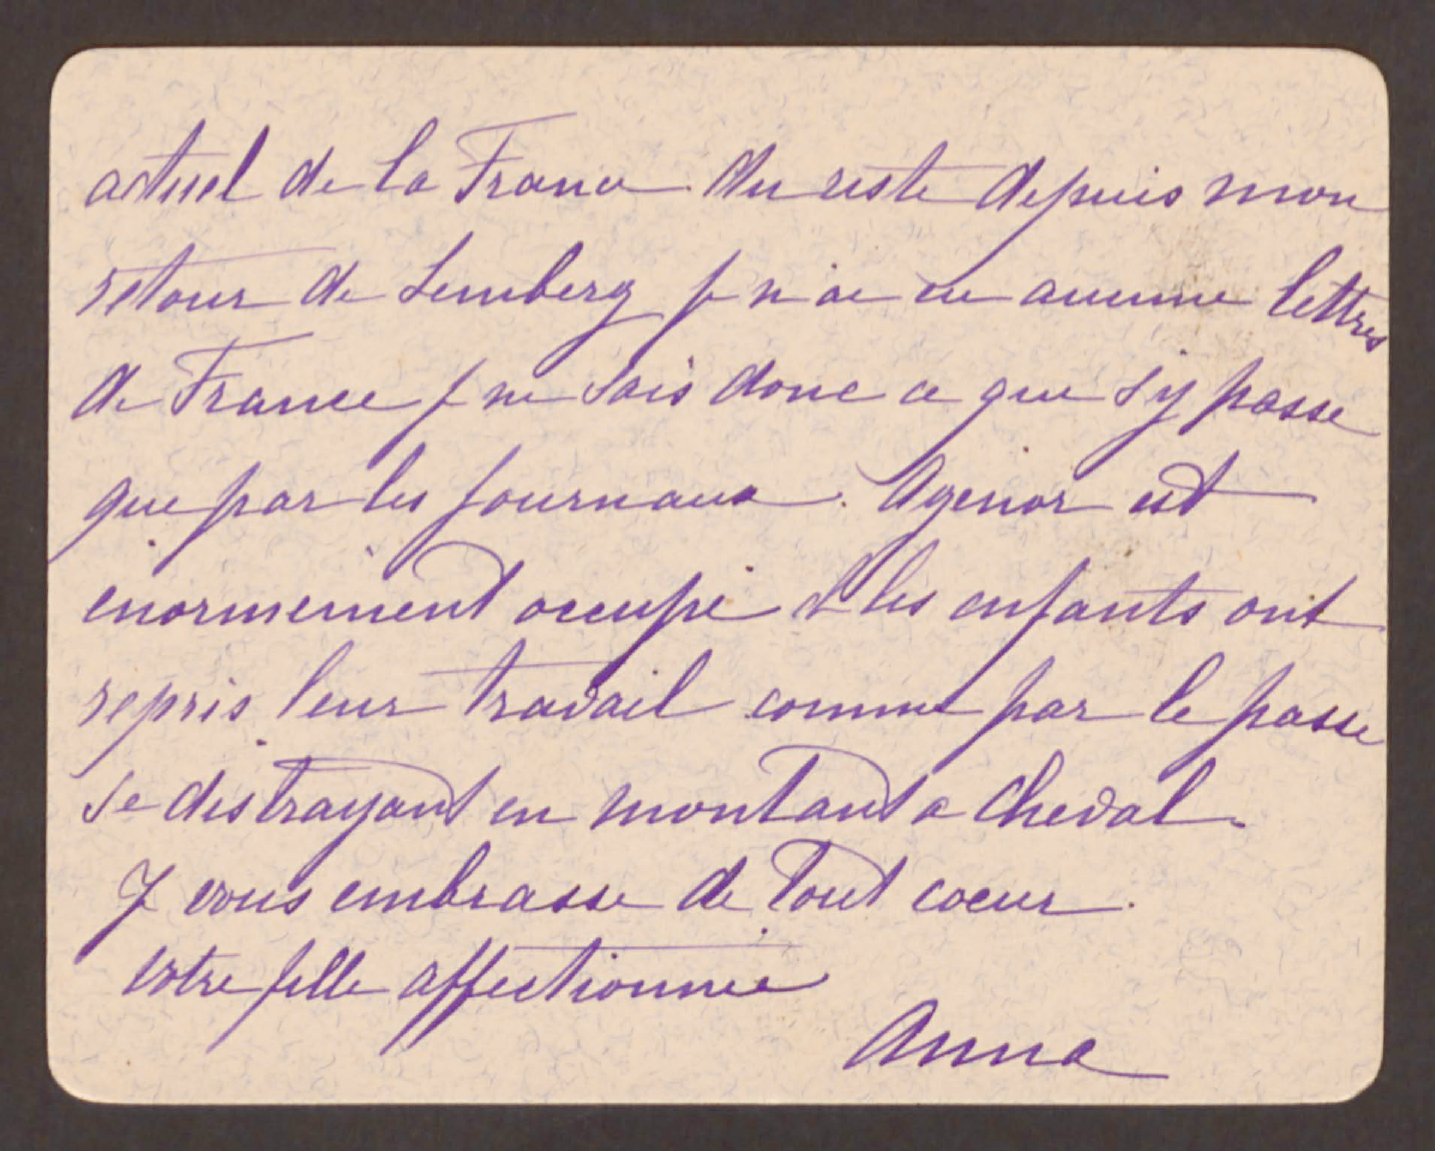 actuel de la France. Du reste depuis mon
retour de Lemberg je n'ai eu aucune lettres
de France je ne sais donc ce que s'y passe
que par les journaux. Agenor est
enormement occupé et les enfants ont
repris leur travail comme par le passe
se distrayant en montant a cheval.
Je vous embrasse de tout coeur.
votre fille affectionnée
Anna